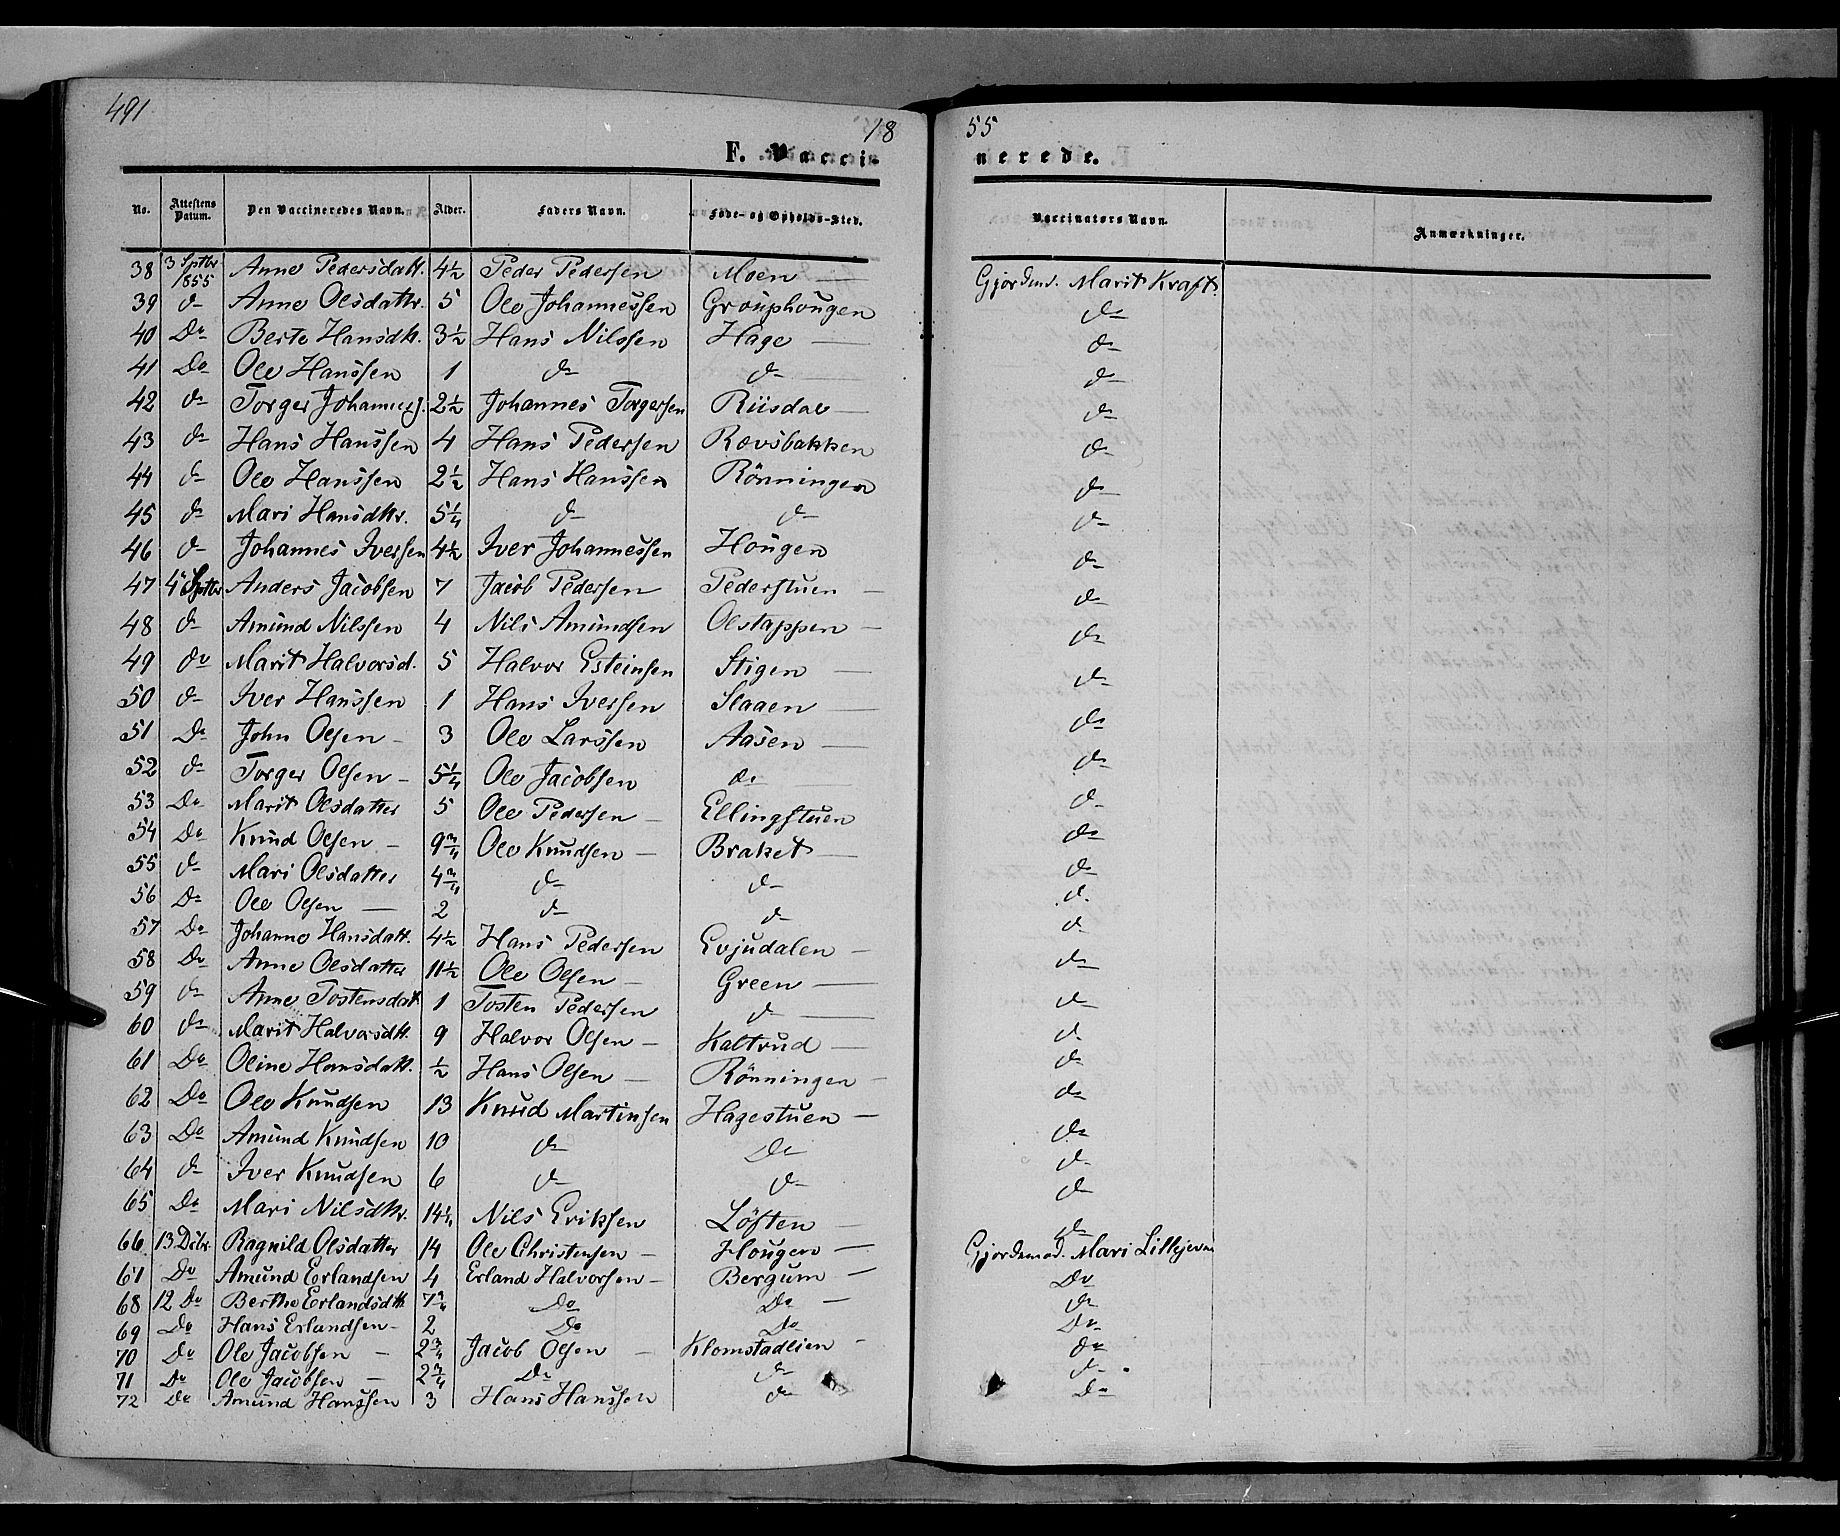 491
18 55
F. Vaccinerede.
No. Attestens Datum. Den Vaccineredes Navn. Alder. Faders Navn. Føde- og Opholds-Sted. Vaccinators Navn. Anmærkninger.
38 3 Sptbr 1855 Anne Pedersdatt. 4½ Peder Pedersen Moen Gjordmd. Marit Kraft.
39 d- Anne Olsdattr. 5 Ole Johannessen Grouphougen do
40 Do Berte Hansdtr. 3½ Hans Nilssen Hage d-
41 Do Ole Hanssen 1 d- d- d-
42 d- Torger Johannesj. 2½ Johannes Torgersen Riisdal d-
43 d- Hans Hanssen 4 Hans Pedersen Rævsbakken d-
44 d- Ole Hanssen 2½ Hans Hanssen Rönningen d-
45 d- Mari Hansdtr. 5¼ d- d- d-
46 d- Johannes Iversen 4½ Iver Johannessen Hougen d-
47 4 Sptbr Anders Jacobsen 7 Jacob Pedersen Pederstuen d-
48 d- Amund Nilssen 4 Nils Amundsen Olstappen do
49 do Marit Halvorsd. 5 Halvor Esteinsen Stigen do
50 d- Iver Hanssen 1 Hans Iversen Slaaen do
51 Do John Olsen 3 Ole Larssen Aasen do
52 d- Torger Olsen 5¼ Ole Jacobsen do d-
53 Do Marit Olsdatter 5 Ole Pedersen Ellingstuen do
54 Do Knud Olsen 9¾ Ole Knudsen Braket do
55 d- Mari Olsdatter 4¾ d- d- d-
56 Do Ole Olsen 2 d- d- d-
57 Do Johanne Hansdatt. 4½ Hans Pedersen Evjudalen do
58 Do Anne Olsdatter 11½ Ole Olsen Green d-
59 d- Anne Tostensdat. 1 Tosten Pedersen d- d-
60 d- Marit Halvorsdtt. 9 Halvor Olsen Kaltrud d-
61 Do Oline Hansdatt. ½ Hans Olsen Rönningen do
62 Do Ole Knudsen 13 Knud Martinsen Hagestuen do
63 Do Amund Knudsen 10 d- Do d-
64 d- Iver Knudsen 6 d- d- d-
65 Do Mari Nilsdtr. 14¼ Nils Eriksen Löften do
66 13 Dcbr. Ragnild Olsdatter 14 Ole Christensen Hougen Gjordemod. Mari Lillejevne
61 Do Amund Erlandsen 4 Erland Halvorsen Bergum Do
68 12 Do Berthe Erlandsdtt. 7¾ Do Do do
69 Do Hans Erlandsen 2 Do Do Do
70 Do Ole Jacobsen 2¾ Jacob Olsen Klomstadlien do
71 Do Ole Jacobsen 2¾ Do d- d-
72 Do Amund Hanssen 3 Hans Hanssen d- Do